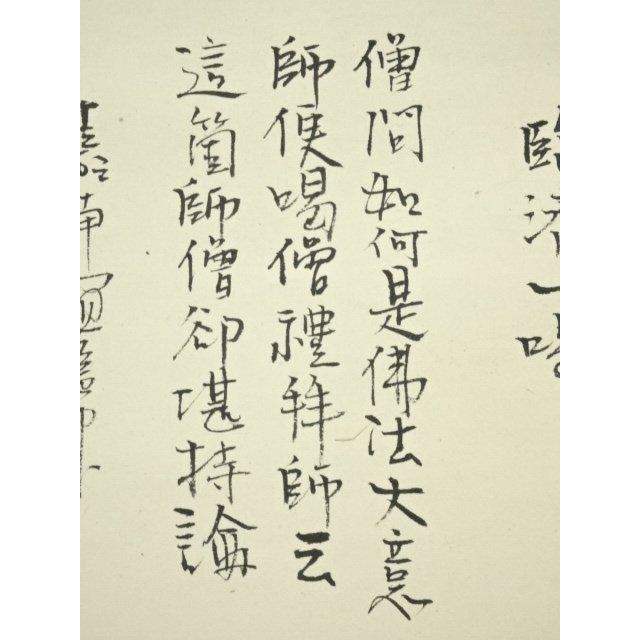 臨済一喝
僧問如何是佛法大意
師便喝僧禮拜師云
這箇師僧卻堪持論